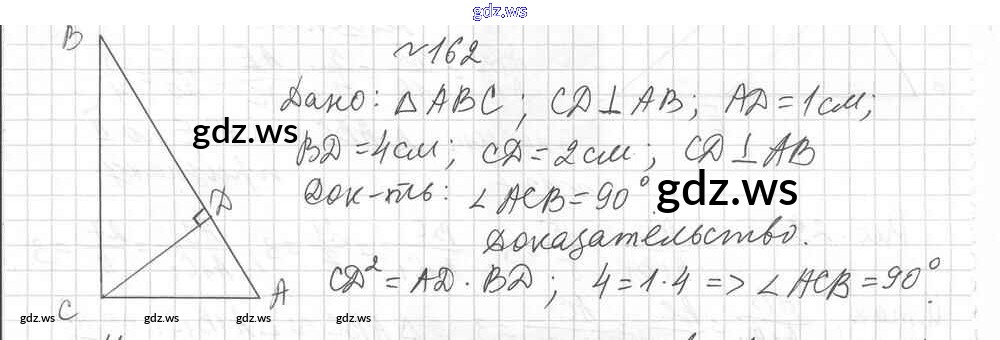 gdz.ws
B
№162
Дано: △ABC; CD⊥AB; AD=1см;
gdz.ws
BD=4см; CD=2см; CD⊥AB
Док-ть: ∠ACB=90°.
gdz.ws
D
Доказательство.
CD²=AD·BD; 4=1·4 => ∠ACB=90°.
C
A
gdz.ws gdz.ws gdz.ws gdz.ws